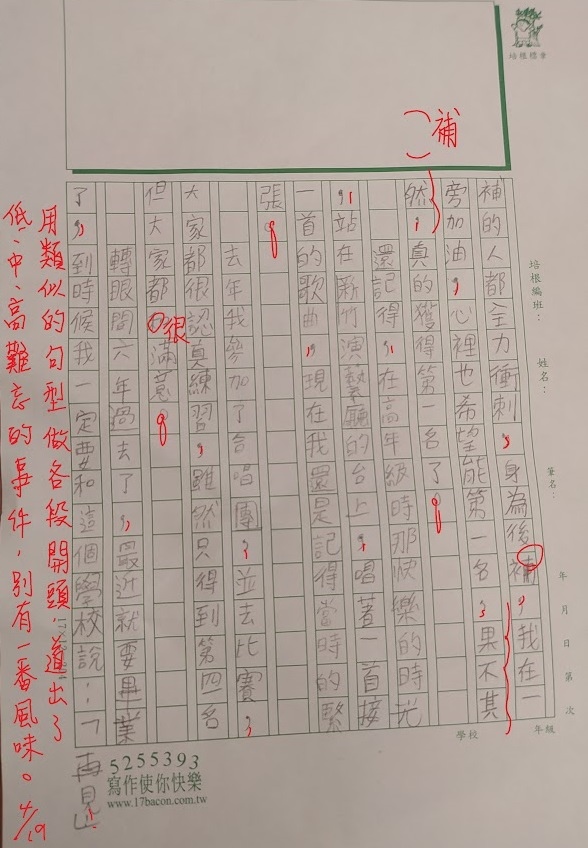 培根標章
補
培根編班：
姓名：
筆名：
年 月 日 第 次
學校
年級
補的人都全力衝刺，身為後補，我在一
旁加油，心裡也希望能第一名，果不其
然，真的獲得第一名了。
還記得，在高年級時那快樂的時光
，站在新竹演藝廳的台上，唱著一首接
一首的歌曲，現在我還是記得當時的緊
張。
去年我參加了合唱團，並去比賽，
大家都很認真練習，雖然只得到第四名
但大家都很滿意。
轉眼間六年過去了，最近就要畢業
了，到時候我一定要和這個學校說：「
再見！」
用類似的句型做各段開頭，道出了
低、中、高難忘的事件，別有一番風味。4/19
5255393
寫作使你快樂
www.17bacon.com.tw